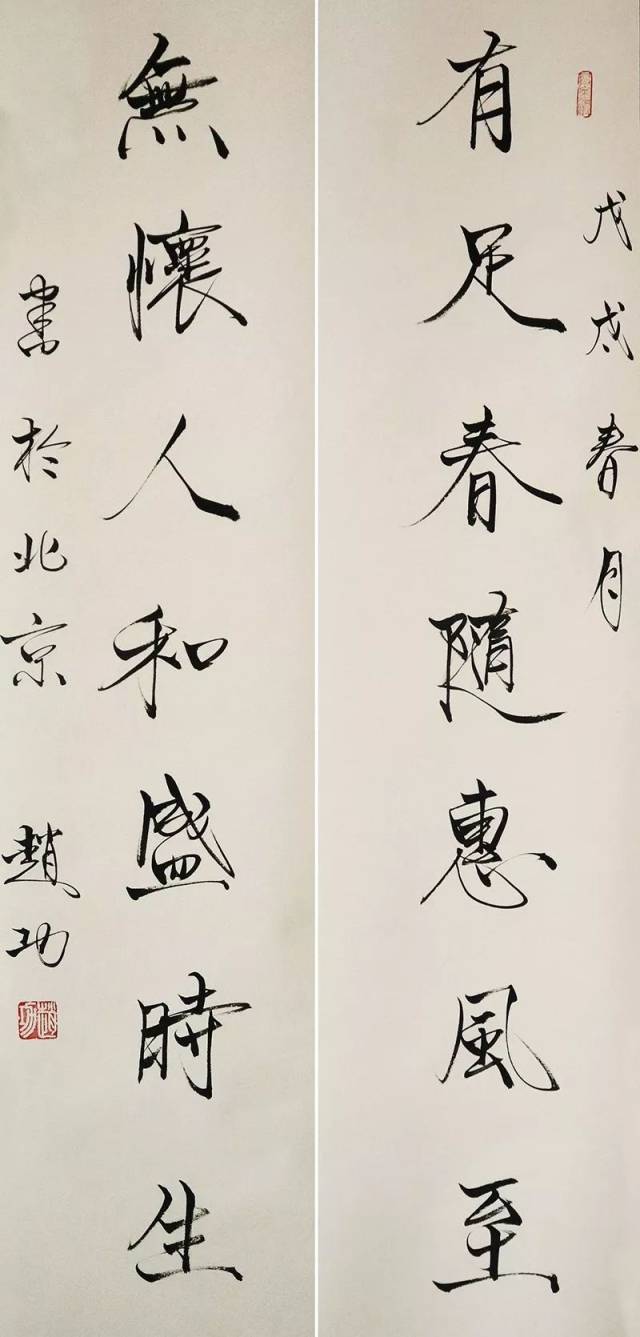 戊戌春月
有足春隨惠風至
無懷人和盛時生
書於北京 趙功
趙功